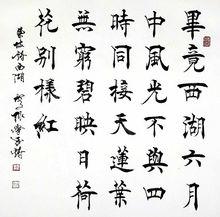 畢竟西湖六月
中風光不與四
時同接天蓮葉
無窮碧映日荷
花別樣紅
詩西湖